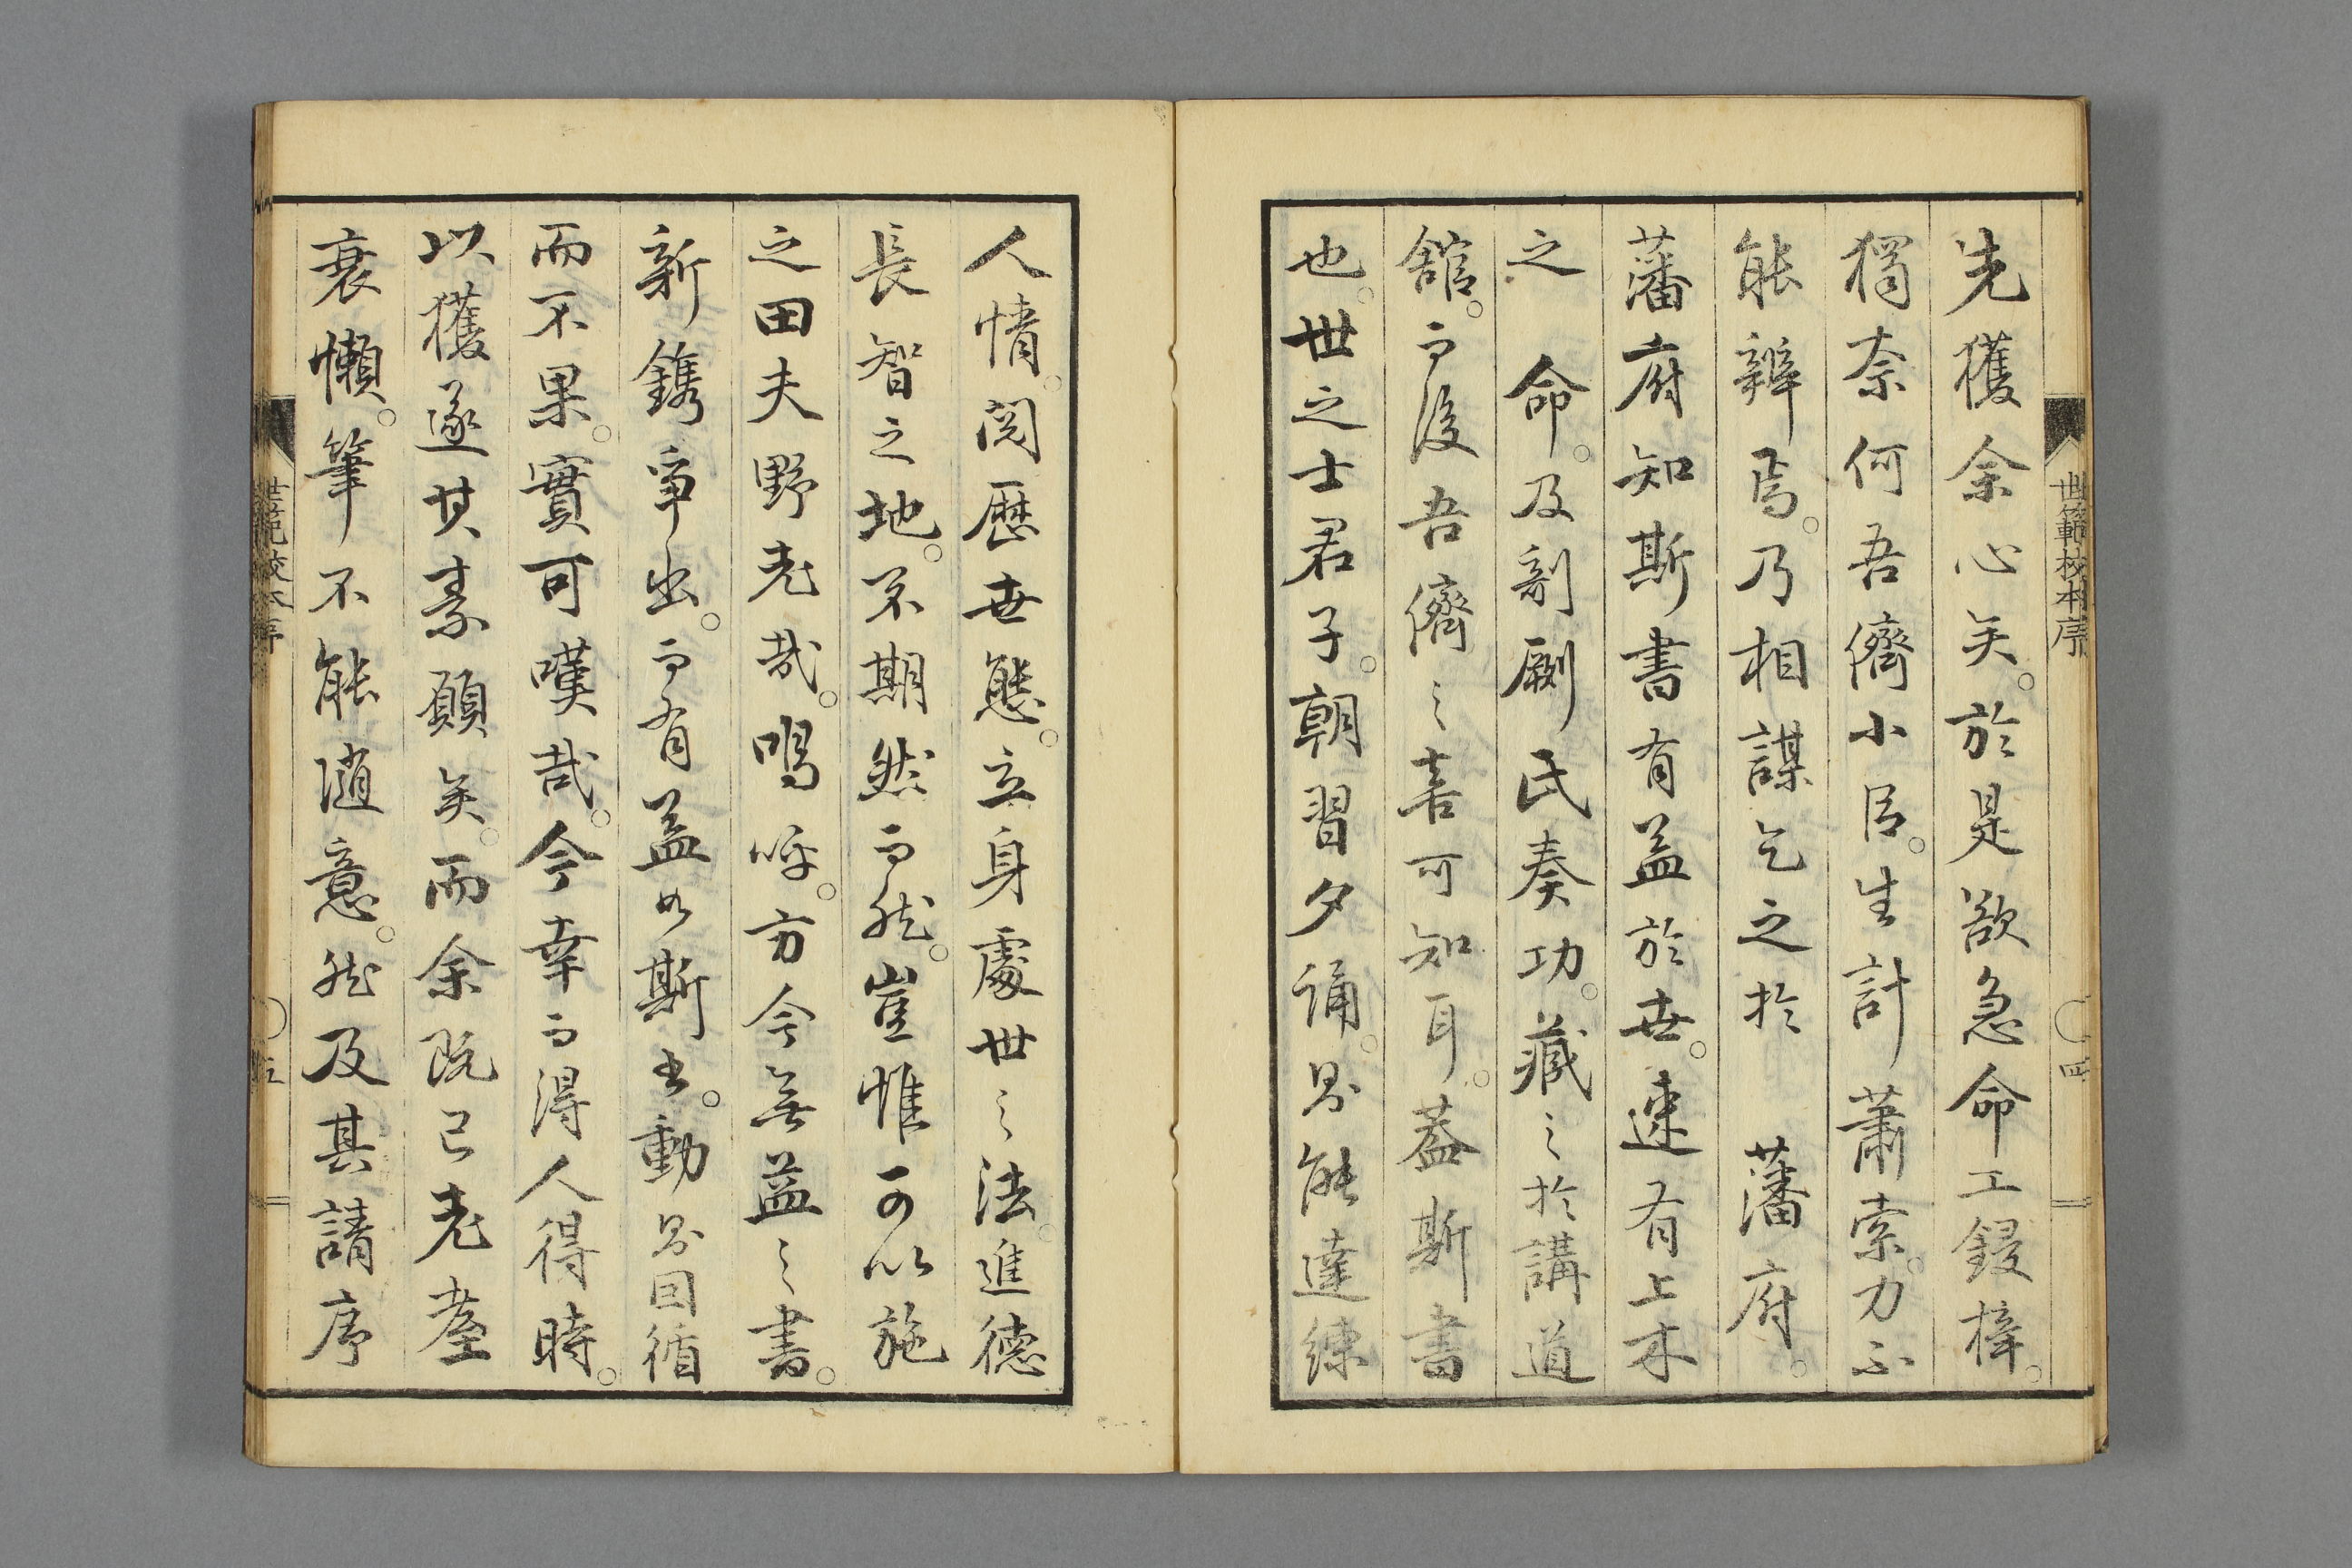 世範校本序
四
先獲余心矣。於是欲急命工鋟梓。
獨奈何吾儕小臣。生計蕭索。力不
能辨焉。乃相謀乞之於　藩府。
藩府知斯書有益於世。速有上木
之　命。及剞劂氏奏功。藏之於講道
館。而後吾儕之喜可知耳。蓋斯書
也。世之士君子。朝習夕誦。則能達練
人情。閱歷世態。立身處世之法。進德
長智之地。不期然而然。豈惟可以施
之田夫野老哉。嗚呼。方今無益之書。
新鐫爭出。而有益如斯書。動則因循
而不果。實可嘆哉。今幸而得人得時。
以獲遂其素願矣。而余既已老耋
衰懶。筆不能隨意。然及其請序
世範校本序
五